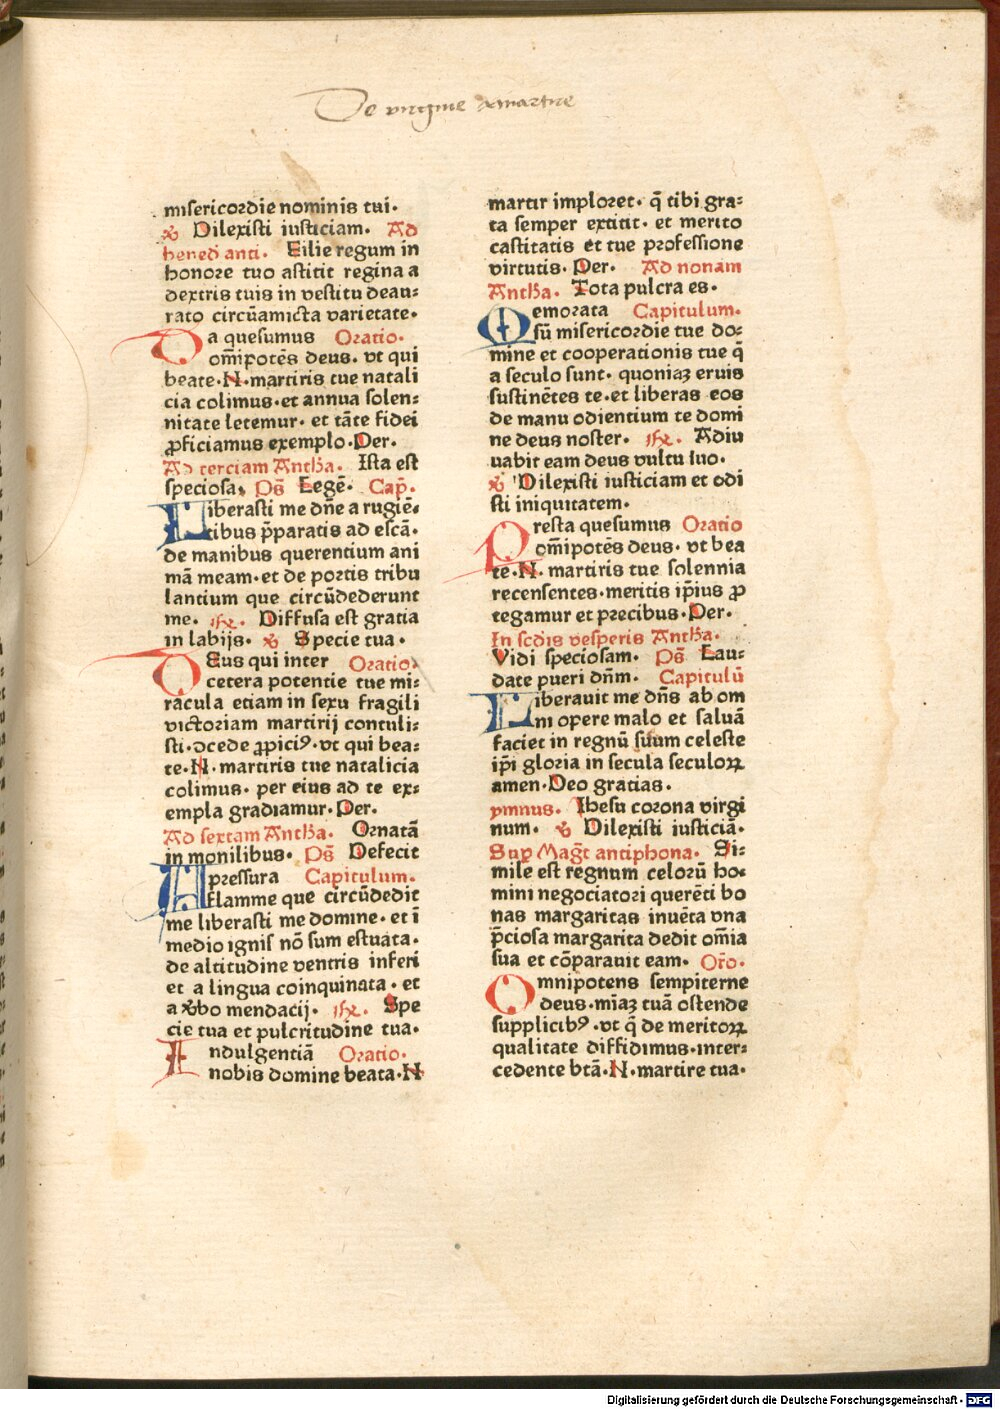 De virgine & martire
misericordie nominis tui.
℣ Dilexisti iusticiam. Ad
bened anti. Filie regum in
honore tuo astitit regina a
dextris tuis in vestitu deau:
rato circūamicta varietate.
Da quesumus Oratio.
om̄ipotēs deus. vt qui
beate. N. martiris tue natali
cia colimus. et annua solen:
nitate letemur. et tāte fidei
ꝓficiamus exemplo. Per.
Ad terciam Antħa. Ista est
speciosa, Ps̄ Legē. Cap̄.
Liberasti me dn̄e a rugiē:
tibus p̄paratis ad escā.
de manibus querentium ani
mā meam. et de portis tribu
lantium que circūdederunt
me. ℟. Diffusa est gratia
in labijs. ℣ Specie tua.
Deus qui inter Oratio.
cetera potentie tue mi:
racula etiam in sexu fragili
victoriam martirij contuli:
sti. ↄcede ꝓpiciꝰ. vt qui bea:
te. N. martiris tue natalicia
colimus. per eius ad te ex:
empla gradiamur. Per.
Ad sextam Antħa. Ornatā
in monilibus. Ps̄ Defecit
A pressura Capitulum.
flamme que circūdedit
me liberasti me domine. et ī
medio ignis nō sum estuata.
de altitudine ventris inferi
et a lingua coinquinata. et
a v̓bo mendacij. ℟. Spe
cie tua et pulcritudine tua.
Indulgentiā Oratio.
nobis domine beata. N
martir imploret. q̄ tibi gra:
ta semper extitit. et merito
castitatis et tue professione
virtutis. Per. Ad nonam
Antħa. Tota pulcra es.
Memorata Capitulum.
sū misericordie tue do:
mine et cooperationis tue q̄
a seculo sunt. quoniaꝫ eruis
sustinētes te. et liberas eos
de manu odientium te domi
ne deus noster. ℟. Adiu
uabit eam deus vultu suo.
℣ Dilexisti iusticiam et odi
sti iniquitatem.
Presta quesumus Oratio
om̄ipotēs deus. vt bea
te. N. martiris tue solennia
recensentes. meritis ip̄ius ꝓ
tegamur et precibus. Per.
In scd̄is vesperis Antħa.
Vidi speciosam. Ps̄ Lau:
date pueri dn̄m. Capitulū
Liberauit me dn̄s ab om
ni opere malo et saluā
faciet in regnū suum celeste
ip̄i gloria in secula seculoꝝ
amen. Deo gratias.
ymnus. Ihesu corona virgi
num. ℣ Dilexisti iusticiā.
Suꝑ Mag̅t antiphona. Si:
mile est regnum celorū ho:
mini negociatori querēti bo
nas margaritas inuēta vna
p̄ciosa margarita dedit om̄ia
sua et cōparauit eam. Or̄o.
Omnipotens sempiterne
deus. mīaꝫ tuā ostende
supplicibꝰ. vt q̄ de meritoꝝ
qualitate diffidimus. inter:
cedente btā. N. martire tua.
Digitalisierung gefördert durch die Deutsche Forschungsgemeinschaft - DFG